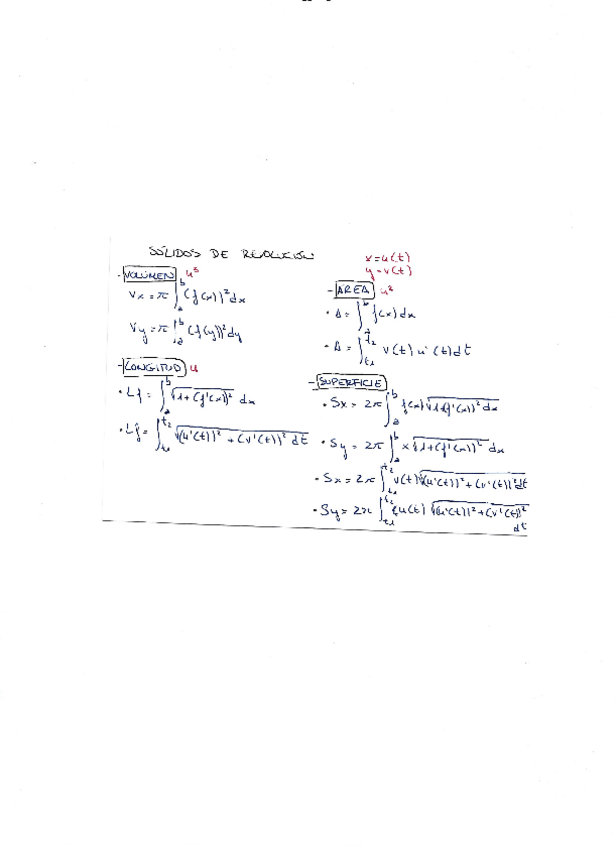 SÓLIDOS DE REVOLUCIÓN
x=u(t)
y=v(t)
- VOLUMEN u³
Vx = π ∫_a^b (f(x))² dx
Vy = π ∫_a^b (f(y))² dy
- LONGITUD u
• Lf = ∫_a^b √(1+(f'(x))²) dx
• Lf = ∫_{t1}^{t2} √((u'(t))² + (v'(t))²) dt
- AREA u²
• A = ∫_a^b f(x) dx
• A = ∫_{t1}^{t2} v(t) u'(t) dt
- SUPERFICIE
• Sx = 2π ∫_a^b f(x) √(1+(f'(x))²) dx
• Sy = 2π ∫_a^b x √(1+(f'(x))²) dx
• Sx = 2π ∫_{t1}^{t2} v(t) √((u'(t))² + (v'(t))²) dt
• Sy = 2π ∫_{t1}^{t2} u(t) √((u'(t))² + (v'(t))²)
dt